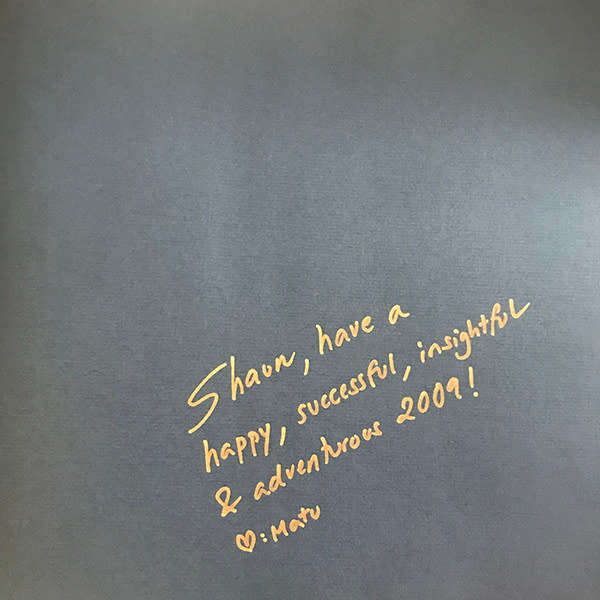 Shaun, have a
happy, successful, insightful
& adventurous 2009!
♡: Matu